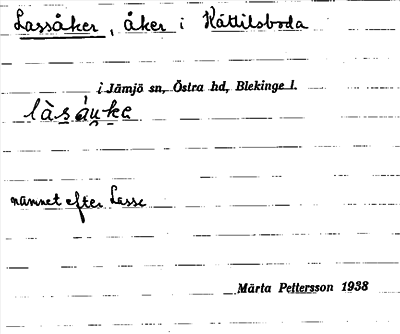 Lassåker, åker i Kättilsboda
i Jämjö sn, Östra hd, Blekinge l.
làsåu̯kɐ
namnet efter Lasse
Märta Pettersson 1938